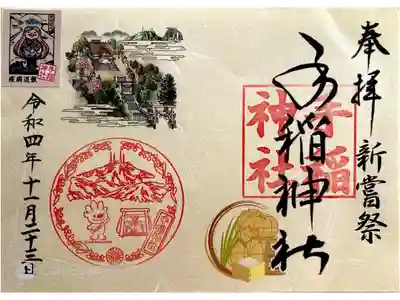 奉拝 新嘗祭
手稲神社
手稲
神社
令和四年 十一月二十三日
疫病退散